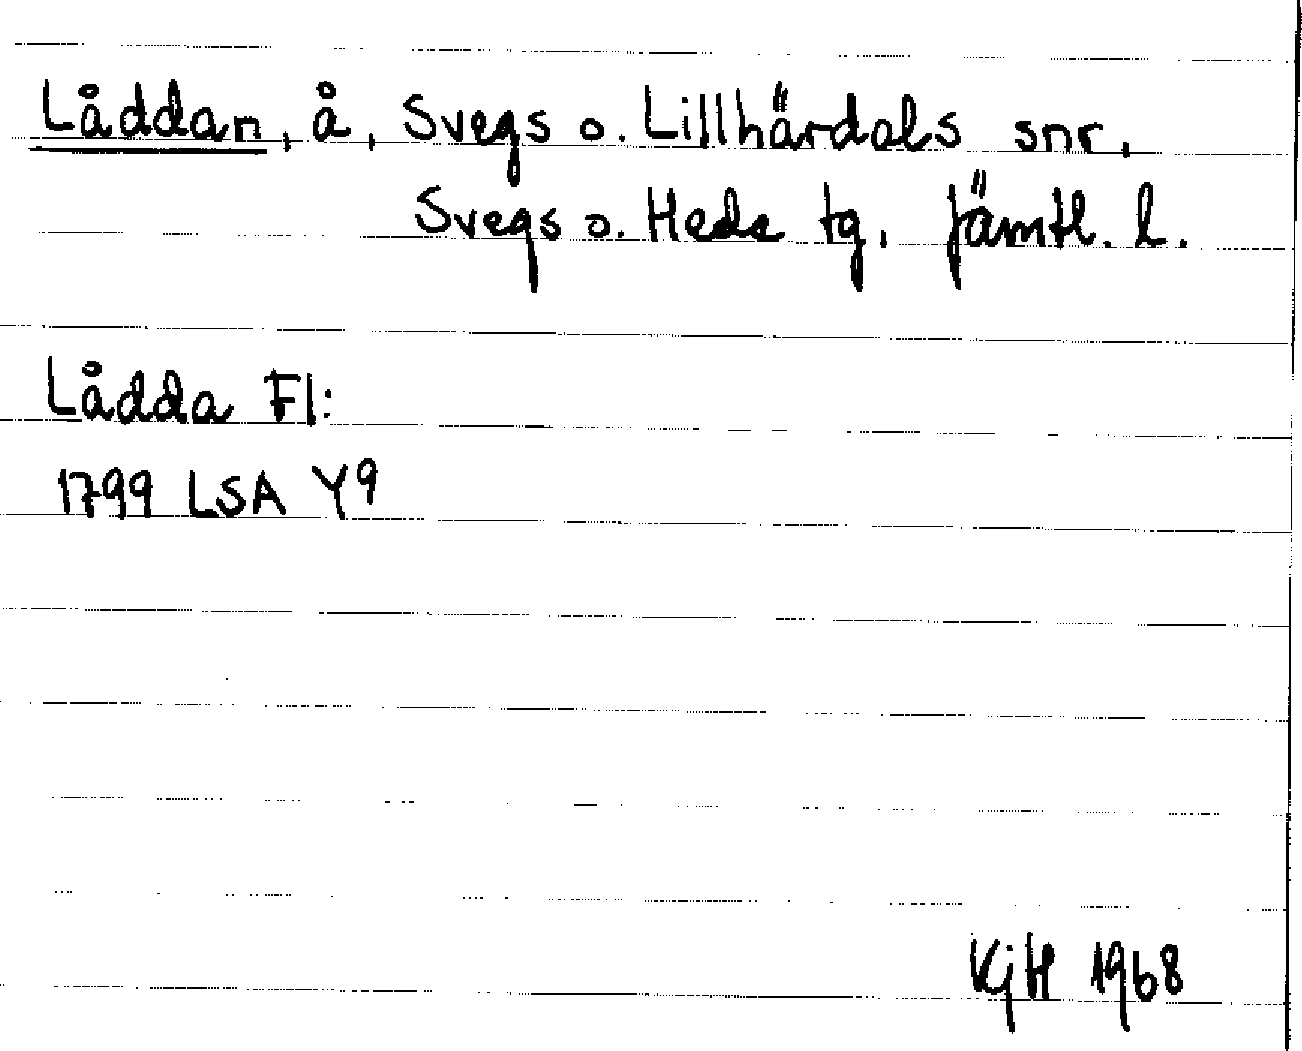 Låddan, å, Svegs o. Lillhärdals snr,
Svegs o. Heds tg, Jämtl. l.
Lådda Fl:
1799 LSA Y9
KjH 1968